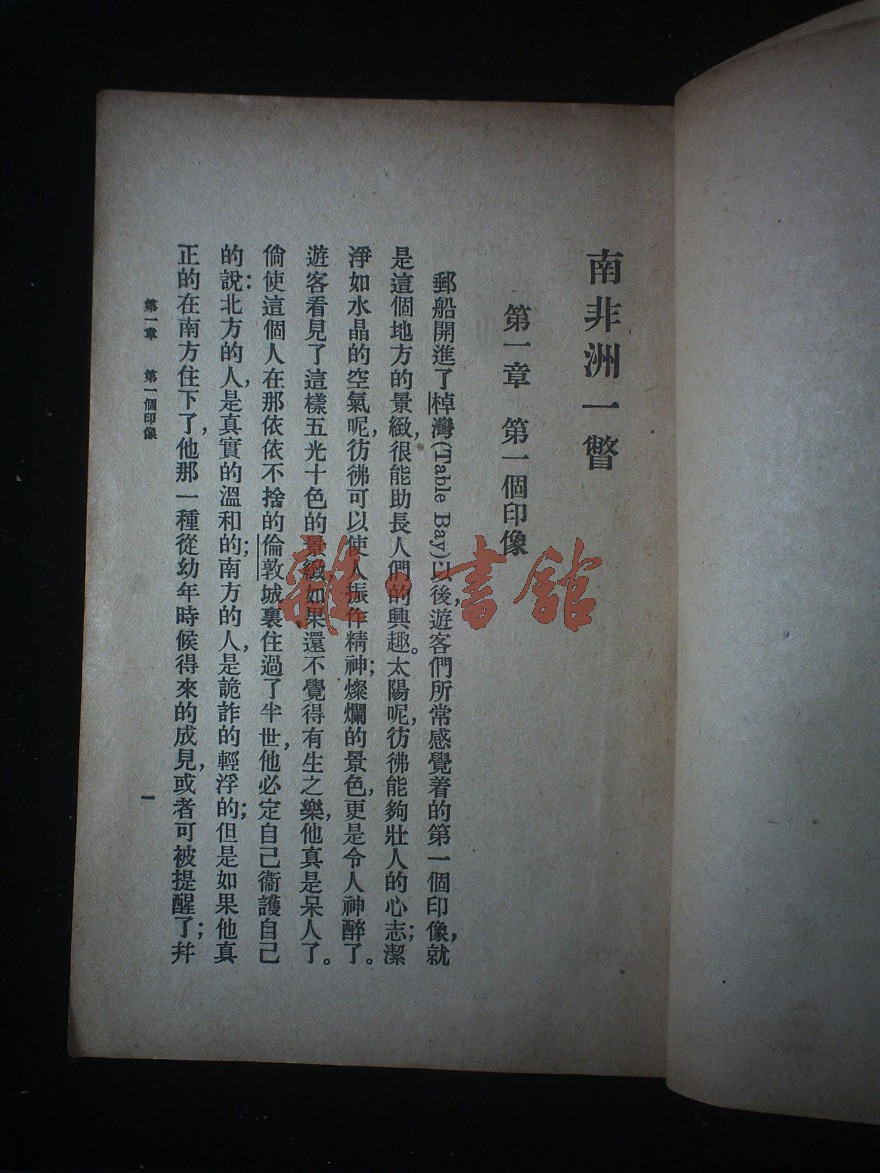 南非洲一瞥
第一章 第一個印像
郵船開進了棹灣(Table Bay)以後,遊客們所常感覺着的第一個印像,就
是這個地方的景緻,很能助長人們的興趣。太陽呢,彷彿能夠壯人的心志;潔
淨如水晶的空氣呢,彷彿可以使人振作精神;燦爛的景色,更是令人神醉了。
遊客看見了這樣五光十色的景緻,如果還不覺得有生之樂,他真是呆人了。
倘使這個人在那依依不捨的倫敦城裏住過了半世,他必定自己衞護自己
的說:北方的人,是真實的溫和的;南方的人,是詭詐的輕浮的;但是如果他真
正的在南方住下了,他那一種從幼年時候得來的成見,或者可被提醒了;幷
第一章 第一個印像
一
雜·書館